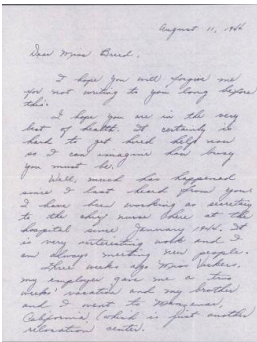 August 11, 1944
Dear Miss Breed,
I hope you will forgive me
for not writing to you long before
this.
I hope you are in the very
best of health. It certainly is
hard to get hired help now
so I can imagine how busy
you must be.
Well, much has happened
since I last heard from you.
I have been working as secretary
to the chief nurse here at the
hospital since January 1944. It
is very interesting work and I
am always meeting new people.
Three weeks ago Miss Vickers,
my employer gave me a two
weeks' vacation and my brother
and I went to Manzanar,
California, (which is just another
relocation center.